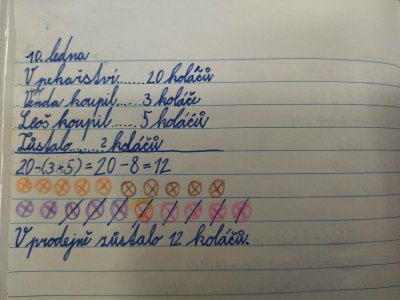 10. ledna
V pekařství......20 koláčů
Venda koupil......3 koláče
Leoš koupil......5 koláčů
Zůstalo.......? koláčů
20-(3+5)=20-8=12
V prodejně zůstalo 12 koláčů.